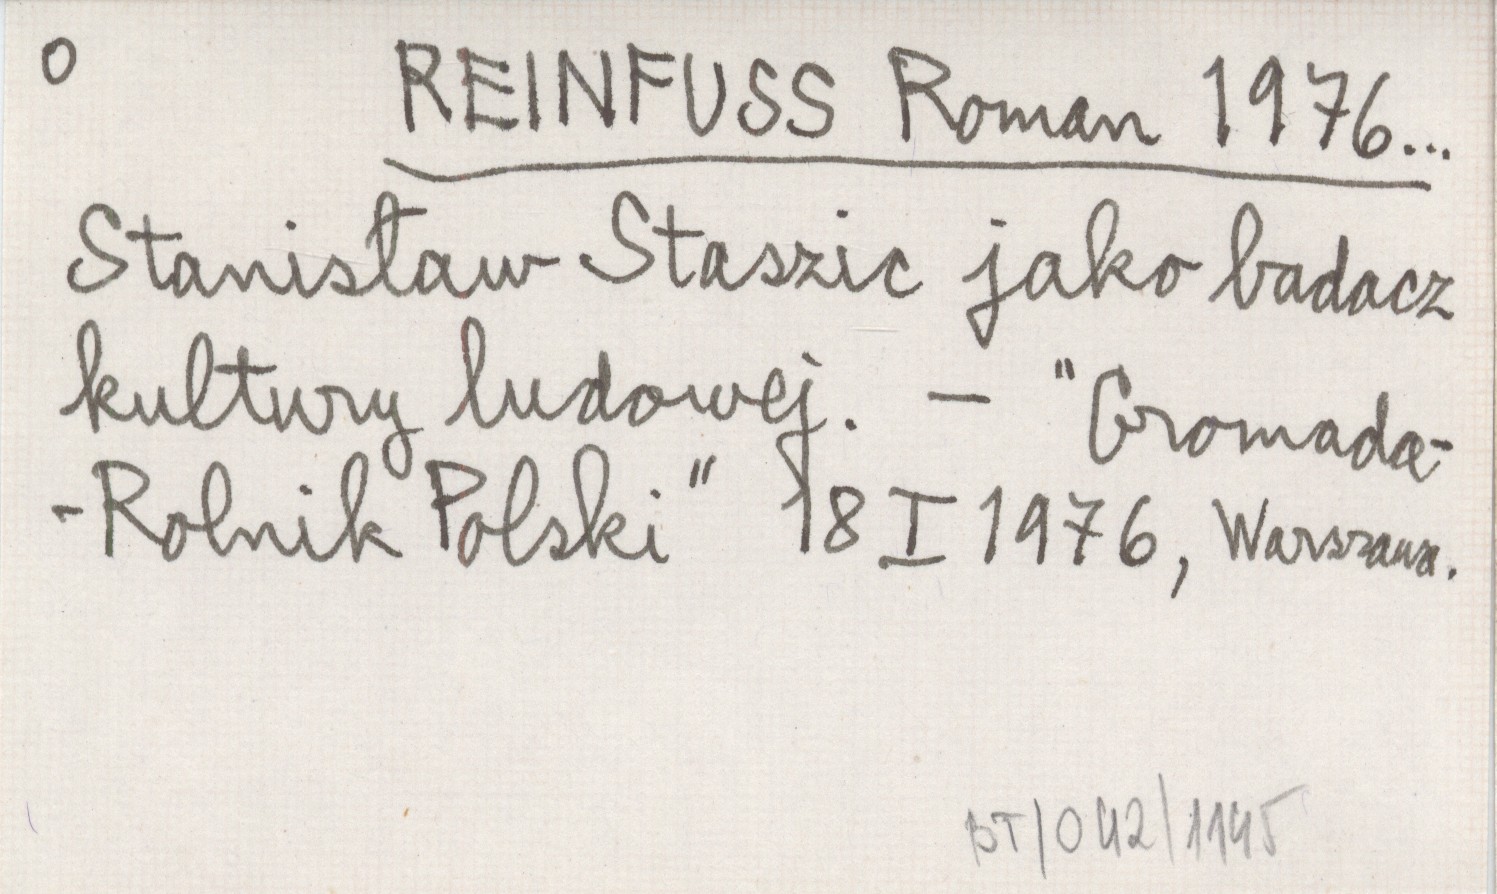 O REINFUSS Roman 1976...
Stanisław Staszic jako badacz
kultury ludowej. – "Gromada-
-Rolnik Polski" 18 I 1976, Warszawa.
BT/042/1145